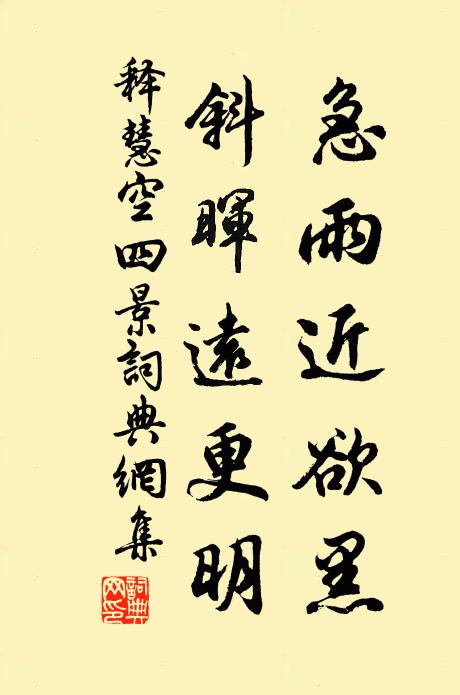 急雨近欲黑
斜暉遠更明
释慧空四景詞典網集
詞典网印